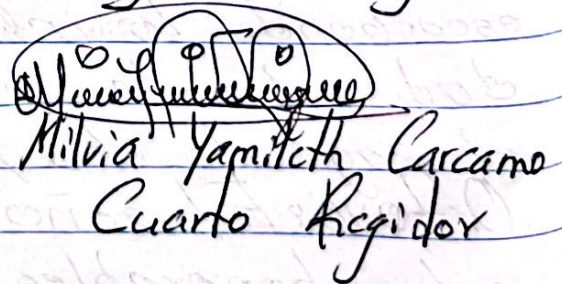 Milvia Yamileth Carcamo
Cuarto Regidor